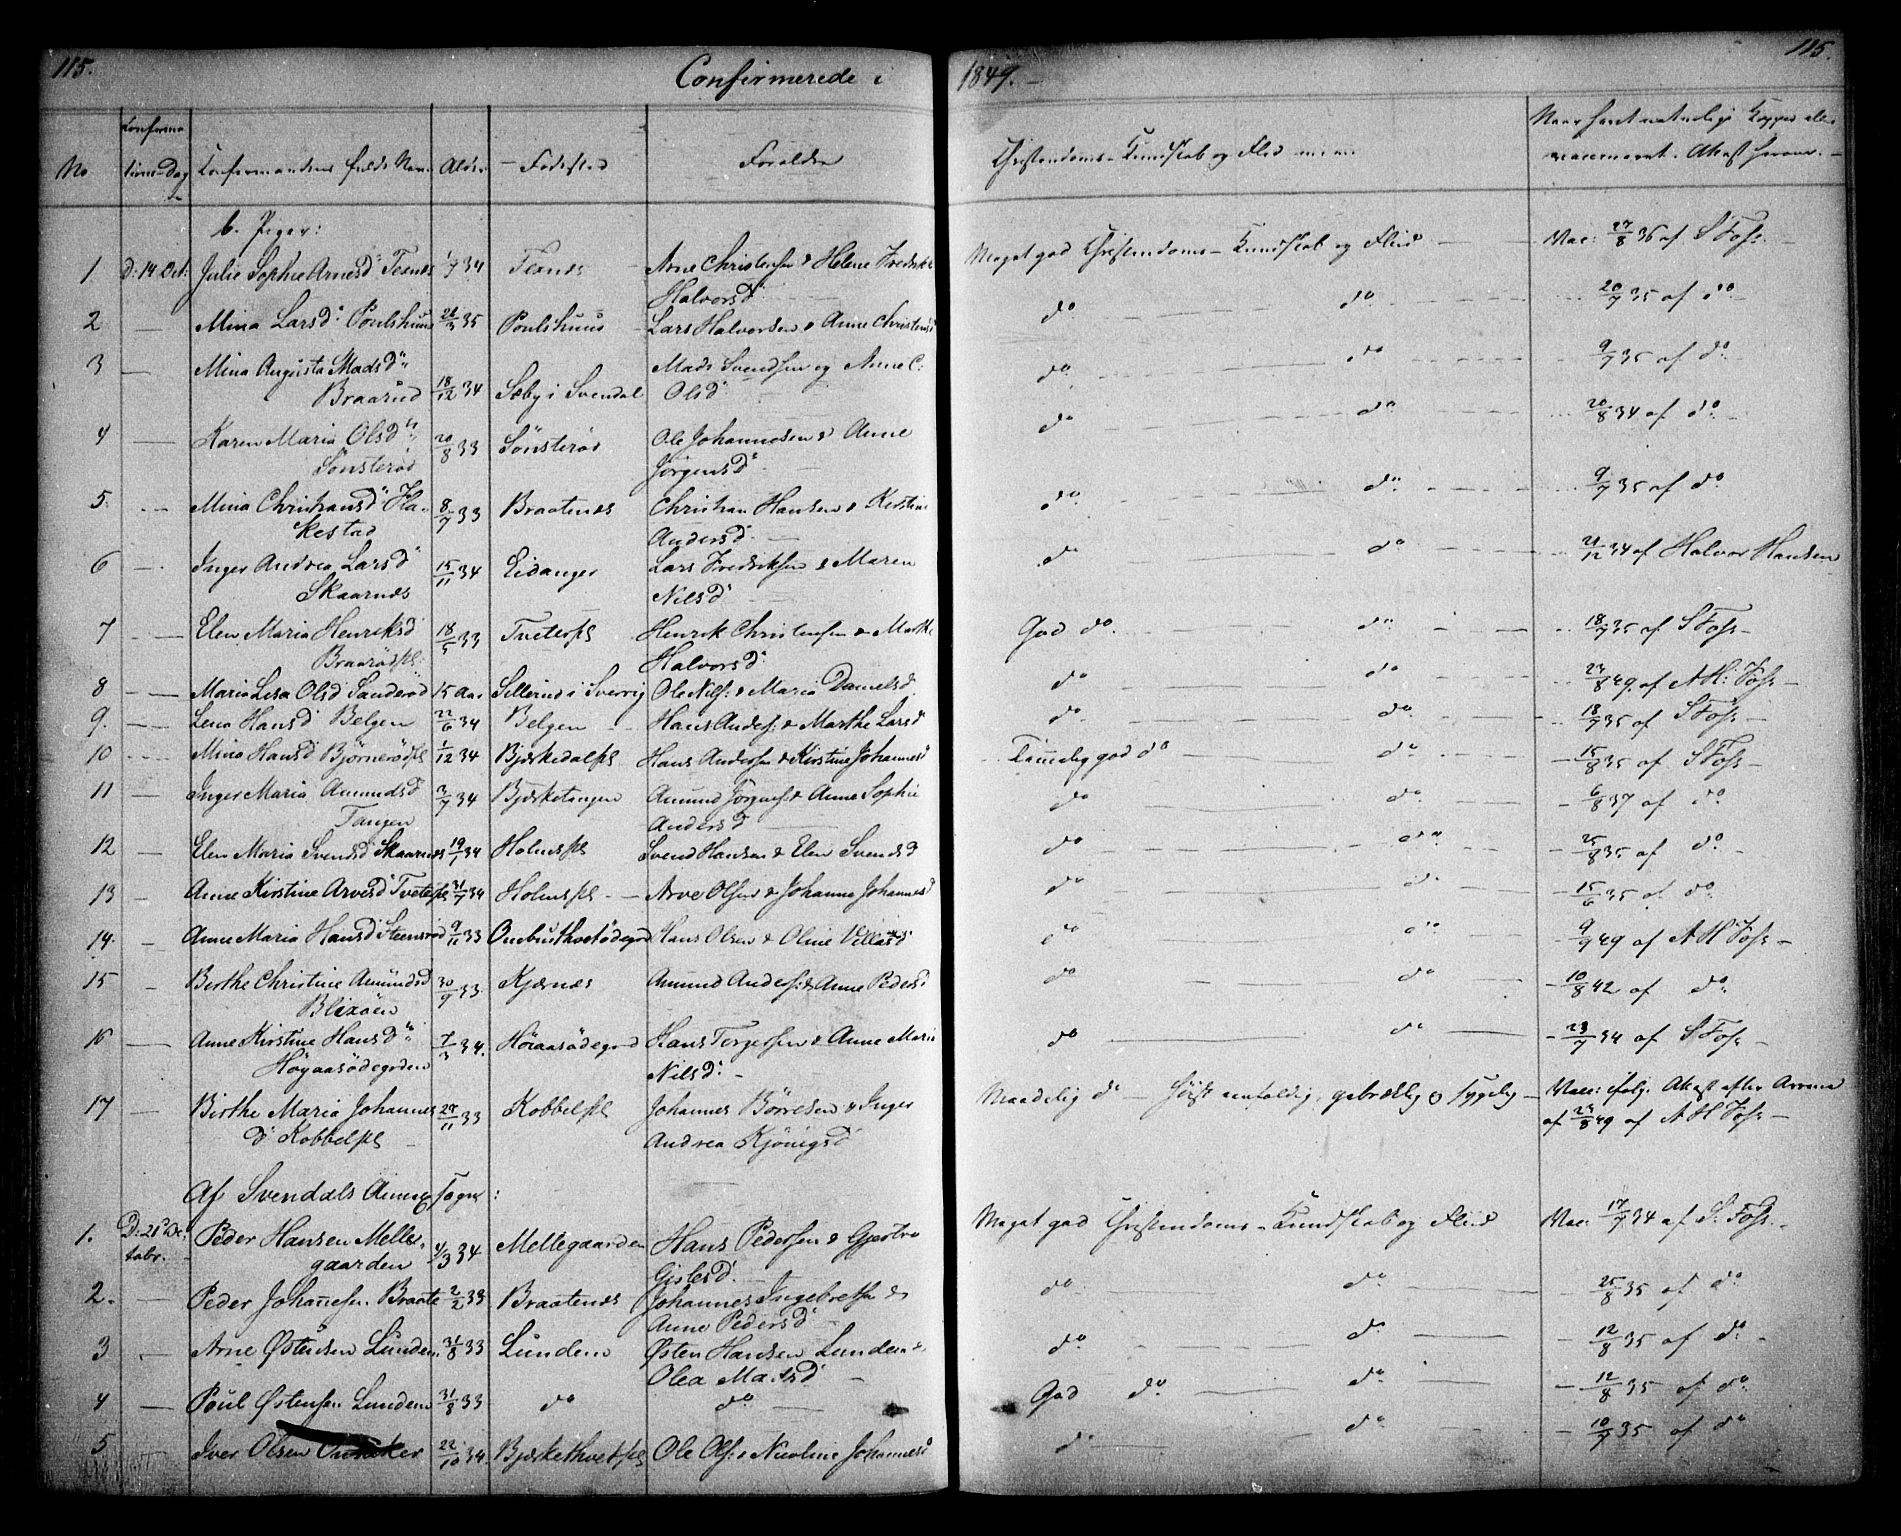 115. Confirmerede i 1849. 115.
No Confirmationsdag Confirmandens fulde Navn Alder Fødested Forældre Christendoms-Kundskab og Flid m.m. Naar havt naturlige Kopper eller vaccineret.
b. Piger:
1. D: 14 Oct: Julie Sophie Arnesd: Texnes 1/7 34 Texnes Arne Christensen & Helene Fredrikke Halvorsd: Meget god Christendoms-Kundskab og Flid Vac: 27/8 36 af S Foss
2 — Mina Larsd: Poulshuus 28/3 35 Poulshuus Lars Halvorsen & Anne Christensd do do 20/7 35 af do
3 — Mina Augusta Madsd: Braarud 18/12 34 Sæby i Svendal Mads Svendsen og Anne C. Olsd: do do 9/7 35 af do
4 — Karen Maria Olsd: Sönsteröd 20/8 33 Sönsteröd Ole Johannesen & Anne Jörgensd: do do 20/8 34 af do
5. — Mina Christiansd: Hakestad 8/7 33 Braatenes Christian Hansen & Kirstine Andersd: do do 9/7 35 af do
6 — Inger Andrea Larsd: Skaarnes 15/11 34 Eidanger Lars Fredriksen & Maren Nilsd: do do 21/12 34 af Halvor Hansen
7 — Elen Maria Henriksd Braarödpl: 18/5 33 Tveterpl Henrik Christensen & Marthe Halvorsd: God do do 18/7 35 af S Foss
8 — Maria Lisa Olsd Sanderöd 15 Aar Sillerud i Sverrig Ole Nils: & Maria Danielsd do do 23/8 49. af A H: Foss
9. — Lena Hansd Belgen 22/6 34 Belgen Hans Anders: & Marthe Larsd do do 18/7 35 af S Foss
10 — Mina Hansd Björnerödpl 1/12 34 Bjerkedalpl Hans Andersen & Kirstine Johannesd Temmelig god do do 15/8 35 af S Foss
11 — Inger Maria Amundsd Tangen 3/7 34 Bjerketangen Amund Jörgens: & Anne Sophie Andersd do do 6/8 37 af do
12 — Elen Maria Svendsd Skaarnes 19/1 34 Holmspl Svend Hansen & Elen Svendsd do do 25/8 35 af do
13 — Anne Kirstine Arvesd Tveterpl 31/7 34 Holmspl Arve Olsen & Johanne Johannesd do do 15/6 35 af do
14. — Anne Maria Hansd Steensröd 9/11 33 Hans Olsen & Oline do do 9/9 49 af A H Foss
15 — Berthe Christine Amundsd Blixöen 30/9 33. Kjærnæs Amund Anders: & Anne Pedersd do do 10/8 42 af do
16 — Anne Kirstine Hansd: Höyaasödegoden 7/3 34. Höiaasödegord Hans Torgersen & Anne Maria Nilsd: do do 23/7 34 af S Foss
17 — Birthe Maria Johannesd Kobbelpl 27/11 33 Kobbelpl Johannes Börresen & Inger Andrea Kjönigsd Maadelig do höist eenfoldig, gebrækkelig og sygelig Vac: ifölg: Attest efter Arrene af 23/8 49 af A H Foss
Af Svendals Annex Sogn:
1. D: 21de October. Peder Hansen Mellegaarden 4/3 34 Mellegaarden Hans Pedersen & Gjertru Gislesd: Meget god Christendoms-Kundskab og Flid Vac: 17/7 34 af S: Foss
2. — Peder Johannesen Braate 2/2 33 Braatenes Johannes Ingebretsen & Anne Pedersd do do 25/8 35 af do
3 — Arne Østensen Lunden 31/8 33 Lunden Østen Hansen Lunden & Olea Matsd do do 12/8 35 af do
4 — Poul Østensen Lunden 31/8 33 do do God do do 12/8 35 af do
5 — Iver Olsen 22/10 34 Bjerkethvedpl Ole Ols: & Nicoline Johannesd do do 10/7 35 af do